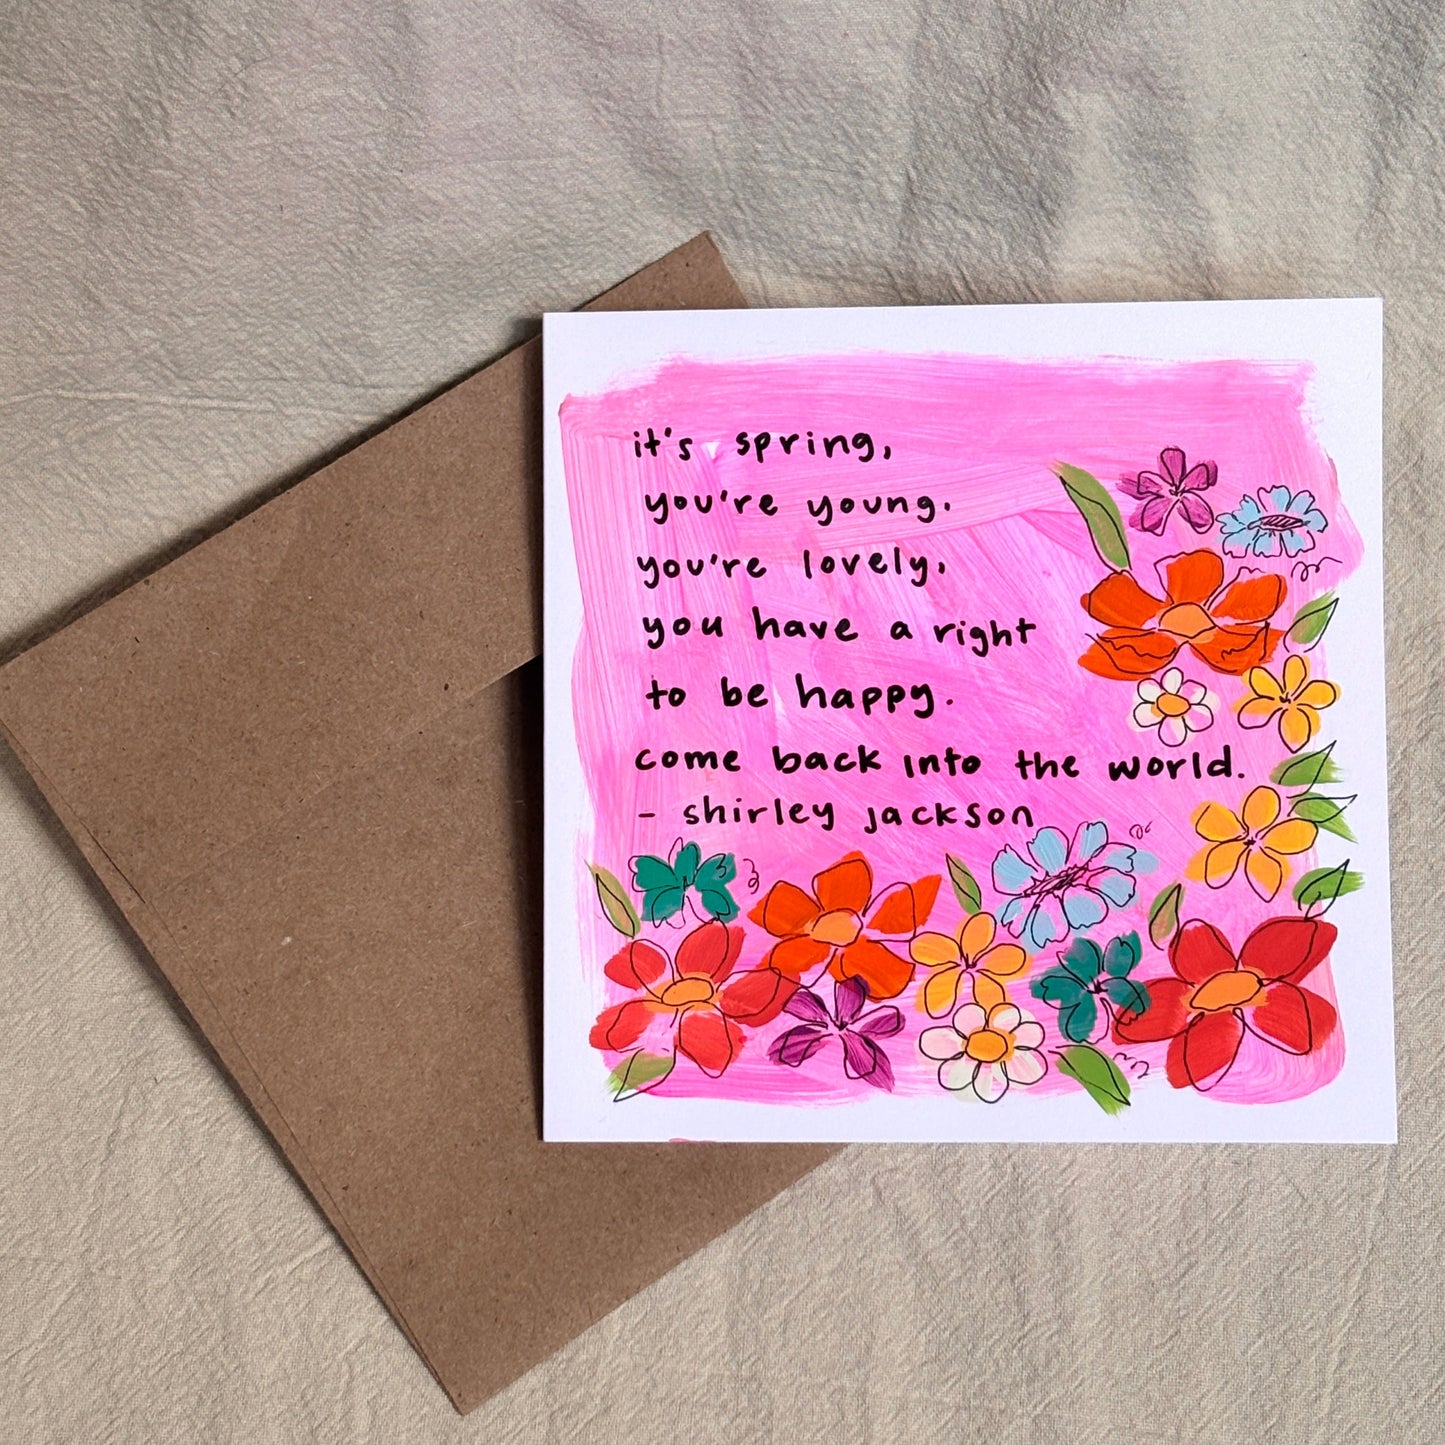 it's spring,
you're young,
you're lovely,
you have a right
to be happy.
come back into the world.
- shirley jackson